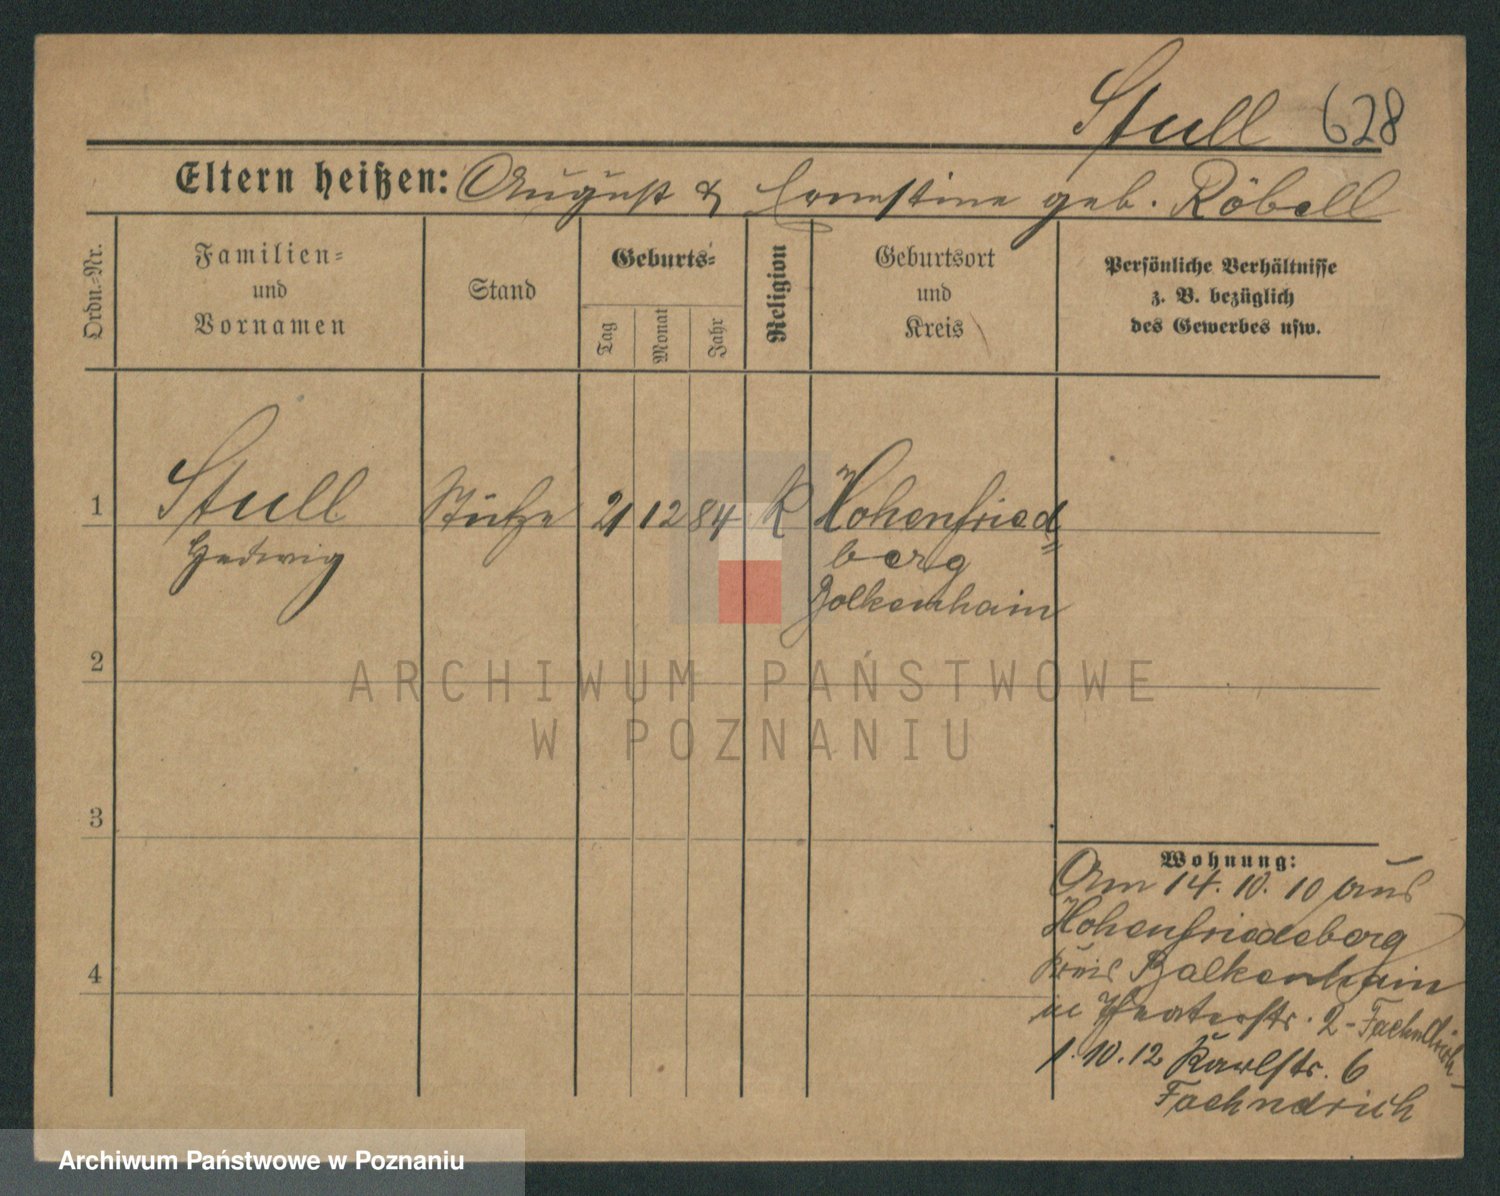 Stull 628
Eltern heißen: August & Ernestine geb. Röbell
Ordn.-Nr.
Familien-
und
Vornamen
Stand
Geburts-
Tag
Monat
Jahr
Religion
Geburtsort
und
Kreis
Persönliche Verhältnisse
z. B. bezüglich
des Gewerbes usw.
1 Stull Stütze 21 12 84 K Hohenfried=
Hedwig berg
Bolkenhain
2
ARCHIWUM PAŃSTWOWE
W POZNANIU
3
4
Wohnung:
Am 14. 10. 10 aus
Hohenfriedeberg
Kreis Bolkenhain
in Theaterstr. 2 -
1. 10. 12 Karlstr. 6
Archiwum Państwowe w Poznaniu